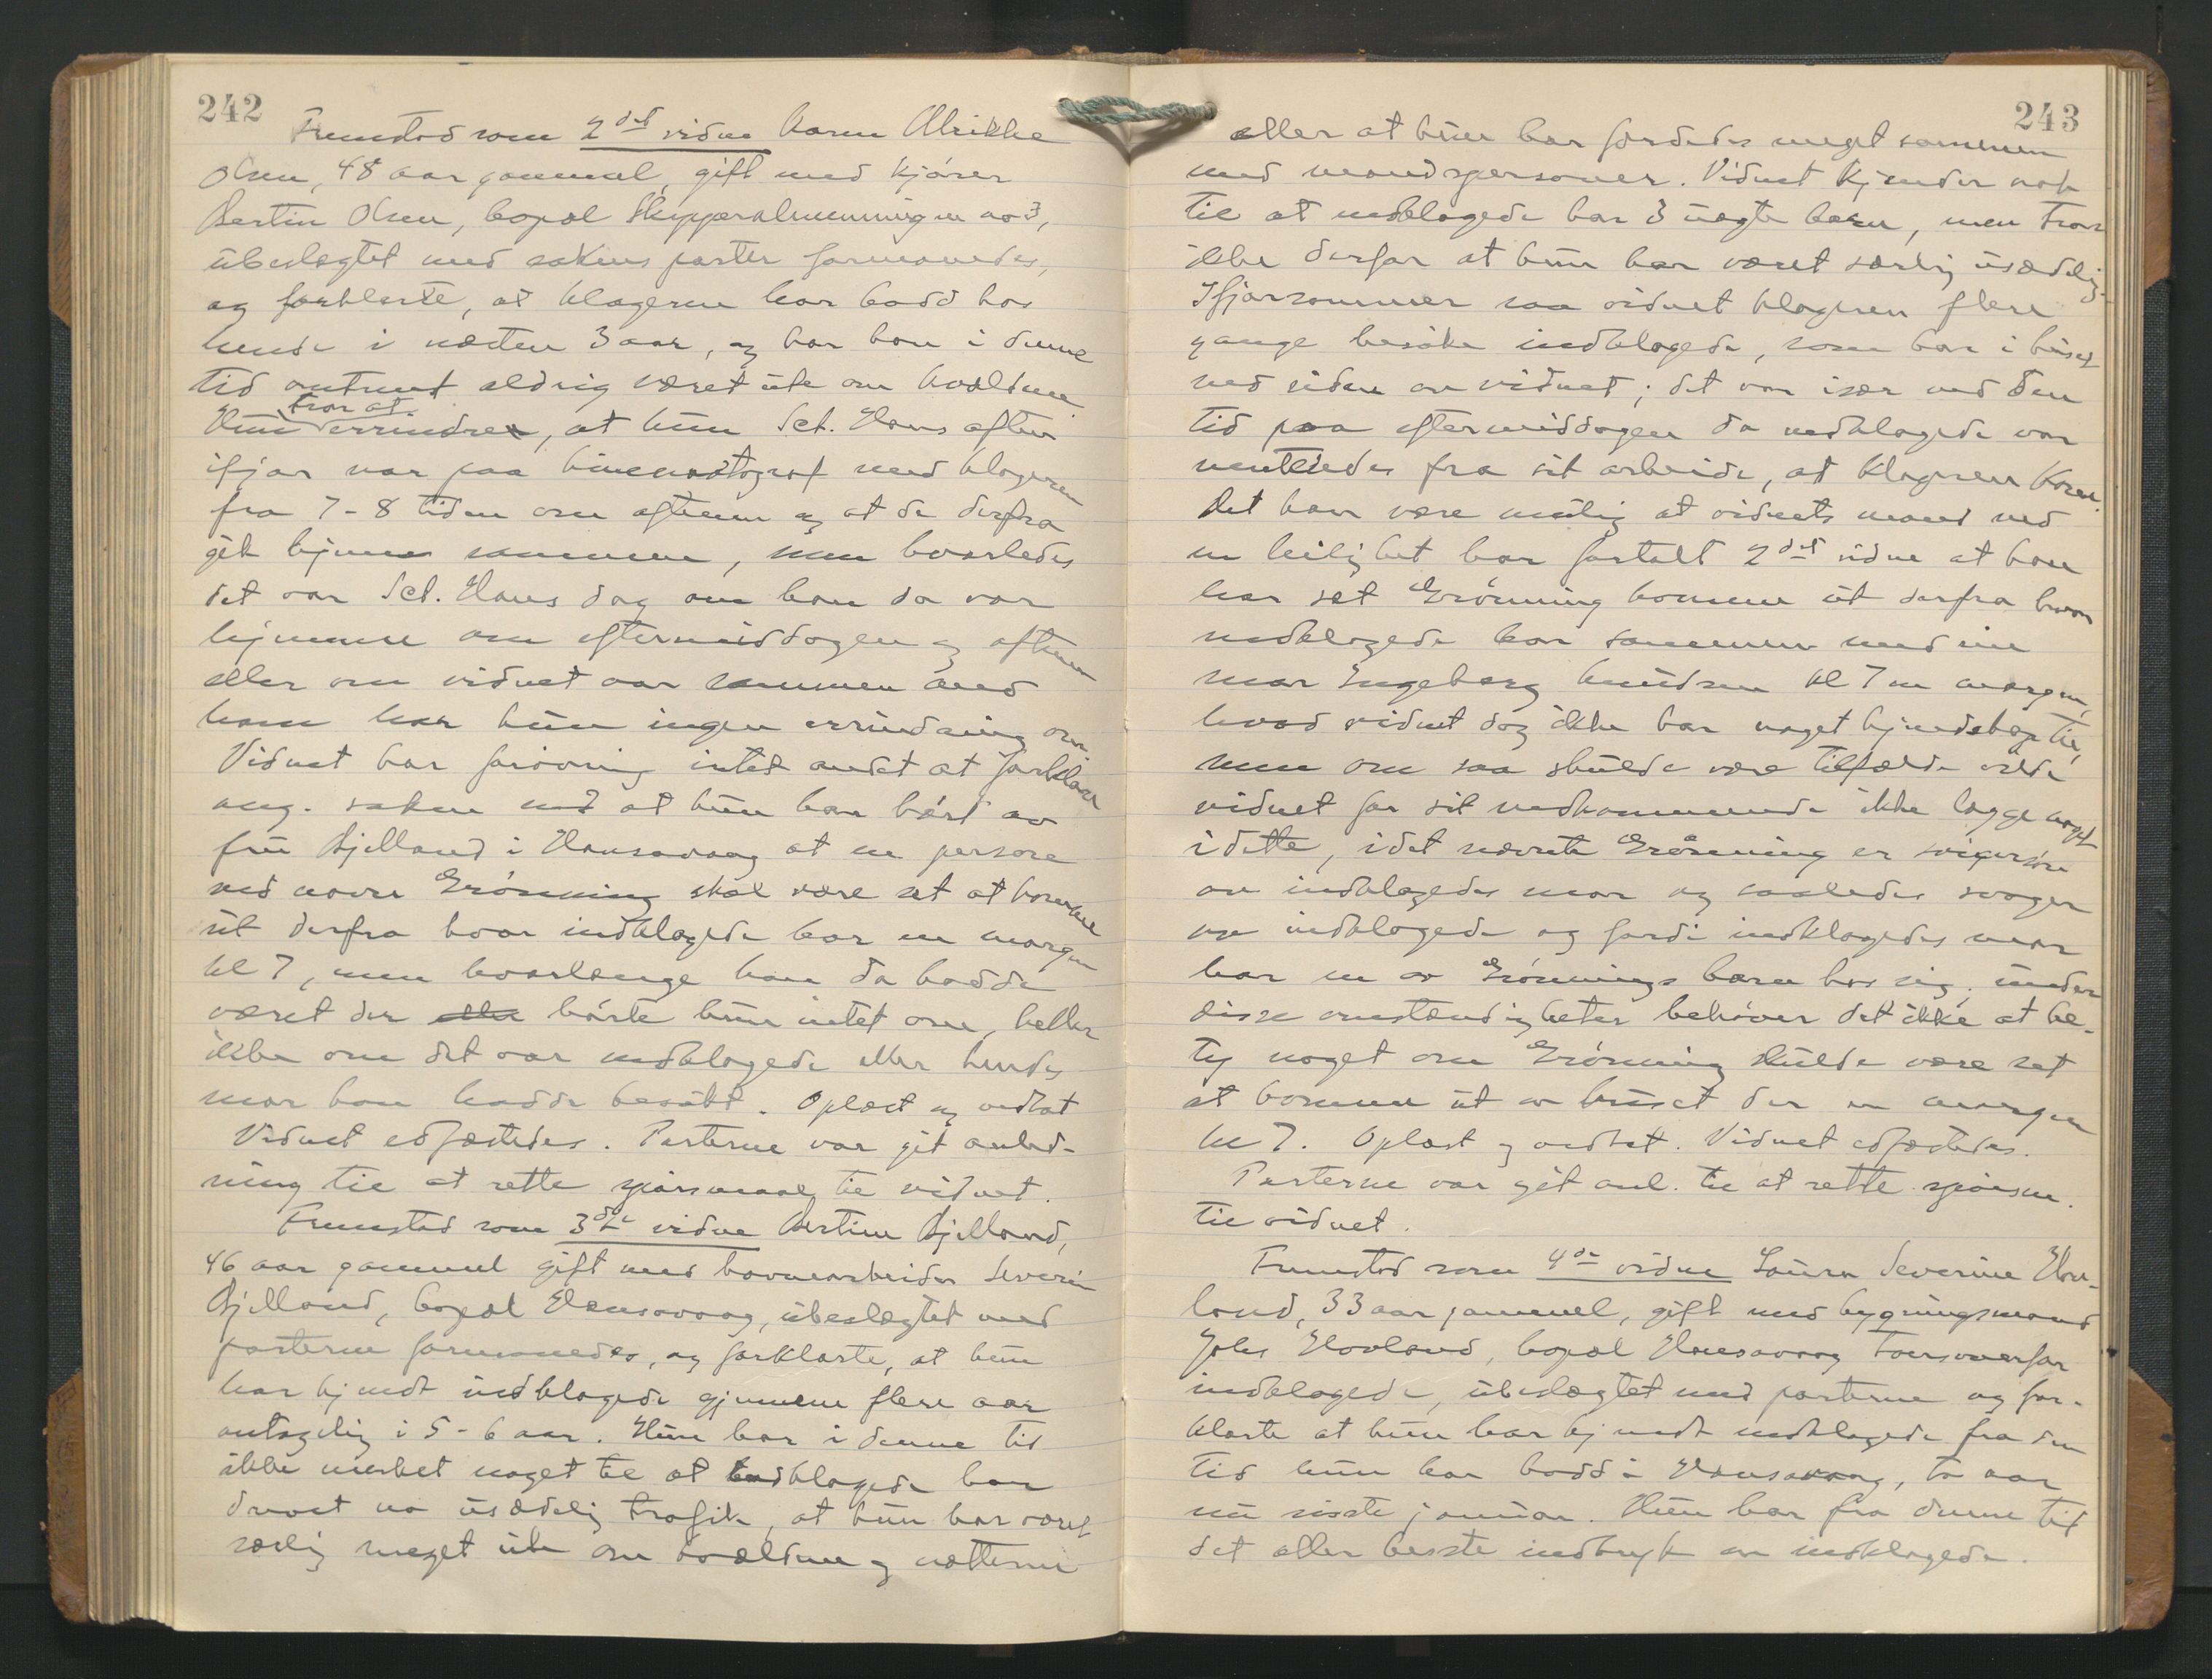 242
Fremstod som 2det vidne Karen Alrikke
Olsen, 48 aar gammel, gift med kjører
Bertin Olsen, bopæl Skipperalmenningen no 3,
ubeslægtet med sakens parter formanedes,
og forklarte, at klageren har bodd hos
hende i næsten 3 aar, og har han i denne
tid omtrent aldrig været ute om kvældene.
tror at
Hun erindrer, at hun Sct. Hans aften
ifjor var paa kinematograf med klageren
fra 7-8 tiden om aftenen og at de derfra
gik hjem sammen, men hvorledes
det var Sct. Hans dag om han da var
hjemme om eftermiddagen og aftenen
eller om vidnet var sammen med
ham har hun ingen erindring om.
Vidnet har forøvrig intet andet at forklare
ang. saken end at hun har hørt av
fru Bjelland i Hansavaag at en person
ved navn Grønning skal være set at komme
ut derfra hvor indklagede bor en morgen
kl 7, men hvorlænge han da hadde
været der eller hørte hun intet om, heller
ikke om det var indklagede eller hendes
mor han hadde besøkt. Oplæst og vedtat
Vidnet edfæstedes. Parterne var git anled-
ning til at rette spørsmaal til vidnet.
Fremstod som 3die vidne Bertine Bjelland,
46 aar gammel gift med havnearbeider Severin
Bjelland, bopæl Hansavaag, ubeslægtet med
parterne formanedes, og forklarte, at hun
har kjendt indklagede gjennem flere aar
antagelig i 5-6 aar. Hun har i denne tid
ikke merket noget til at indklagede har
drevet no usædelig trafik, at hun har været
særlig meget ute om kvældene og nætterne
243
eller at hun har færdedes meget sammen
med mandspersoner. Vidnet kjender nok
til at indklagede har 3 uegte barn, men tror
ikke derfor at hun har været særlig usædelig.
Ifjorsommer saa vidnet klageren flere
gange besøke indklagede, som bor i huset
ved siden av vidnet; det var især ved den
tid paa eftermiddagen da indklagede var
ventendes fra sit arbeide, at klageren kom.
Det kan være mulig at vidnets mand ved
en leilighet har fortalt 2det vidne at han
har set Grønning komme ut derfra hvor
indklagede bor sammen med sin
mor Ingeborg Knudsen kl 7 en morgen,
hvad vidnet dog ikke har noget kjendskap til,
men om saa skulde være tilfælde vilde
vidnet for sit vedkommende ikke lægge noget
i dette, idet nævnte Grønning er svigersøn
av indklagedes mor og saaledes svoger
av indklagede og fordi indklagedes mor
har en av Grønnings barn hos sig. Under
disse omstændigheter behøver det ikke at be-
ty noget om Grønning skulde være set
at komme ut av huset der en morgen
kl 7. Oplæst og vedtat. Vidnet edfæstedes.
Parterne var git anl. til at rette spørsm.
til vidnet.
Fremstod som 4de vidne Laura Severine Hov-
land, 33 aar gammel, gift med bygningsmand
Johs Hovland, bopæl Hansavaag
indklagede, ubeslægtet med parterne og for-
klarte at hun har kjendt indklagede fra den
tid hun har bodd i Hansavaag, to aar
nu siste januar. Hun har fra denne tid
det aller beste indtryk av indklagede.